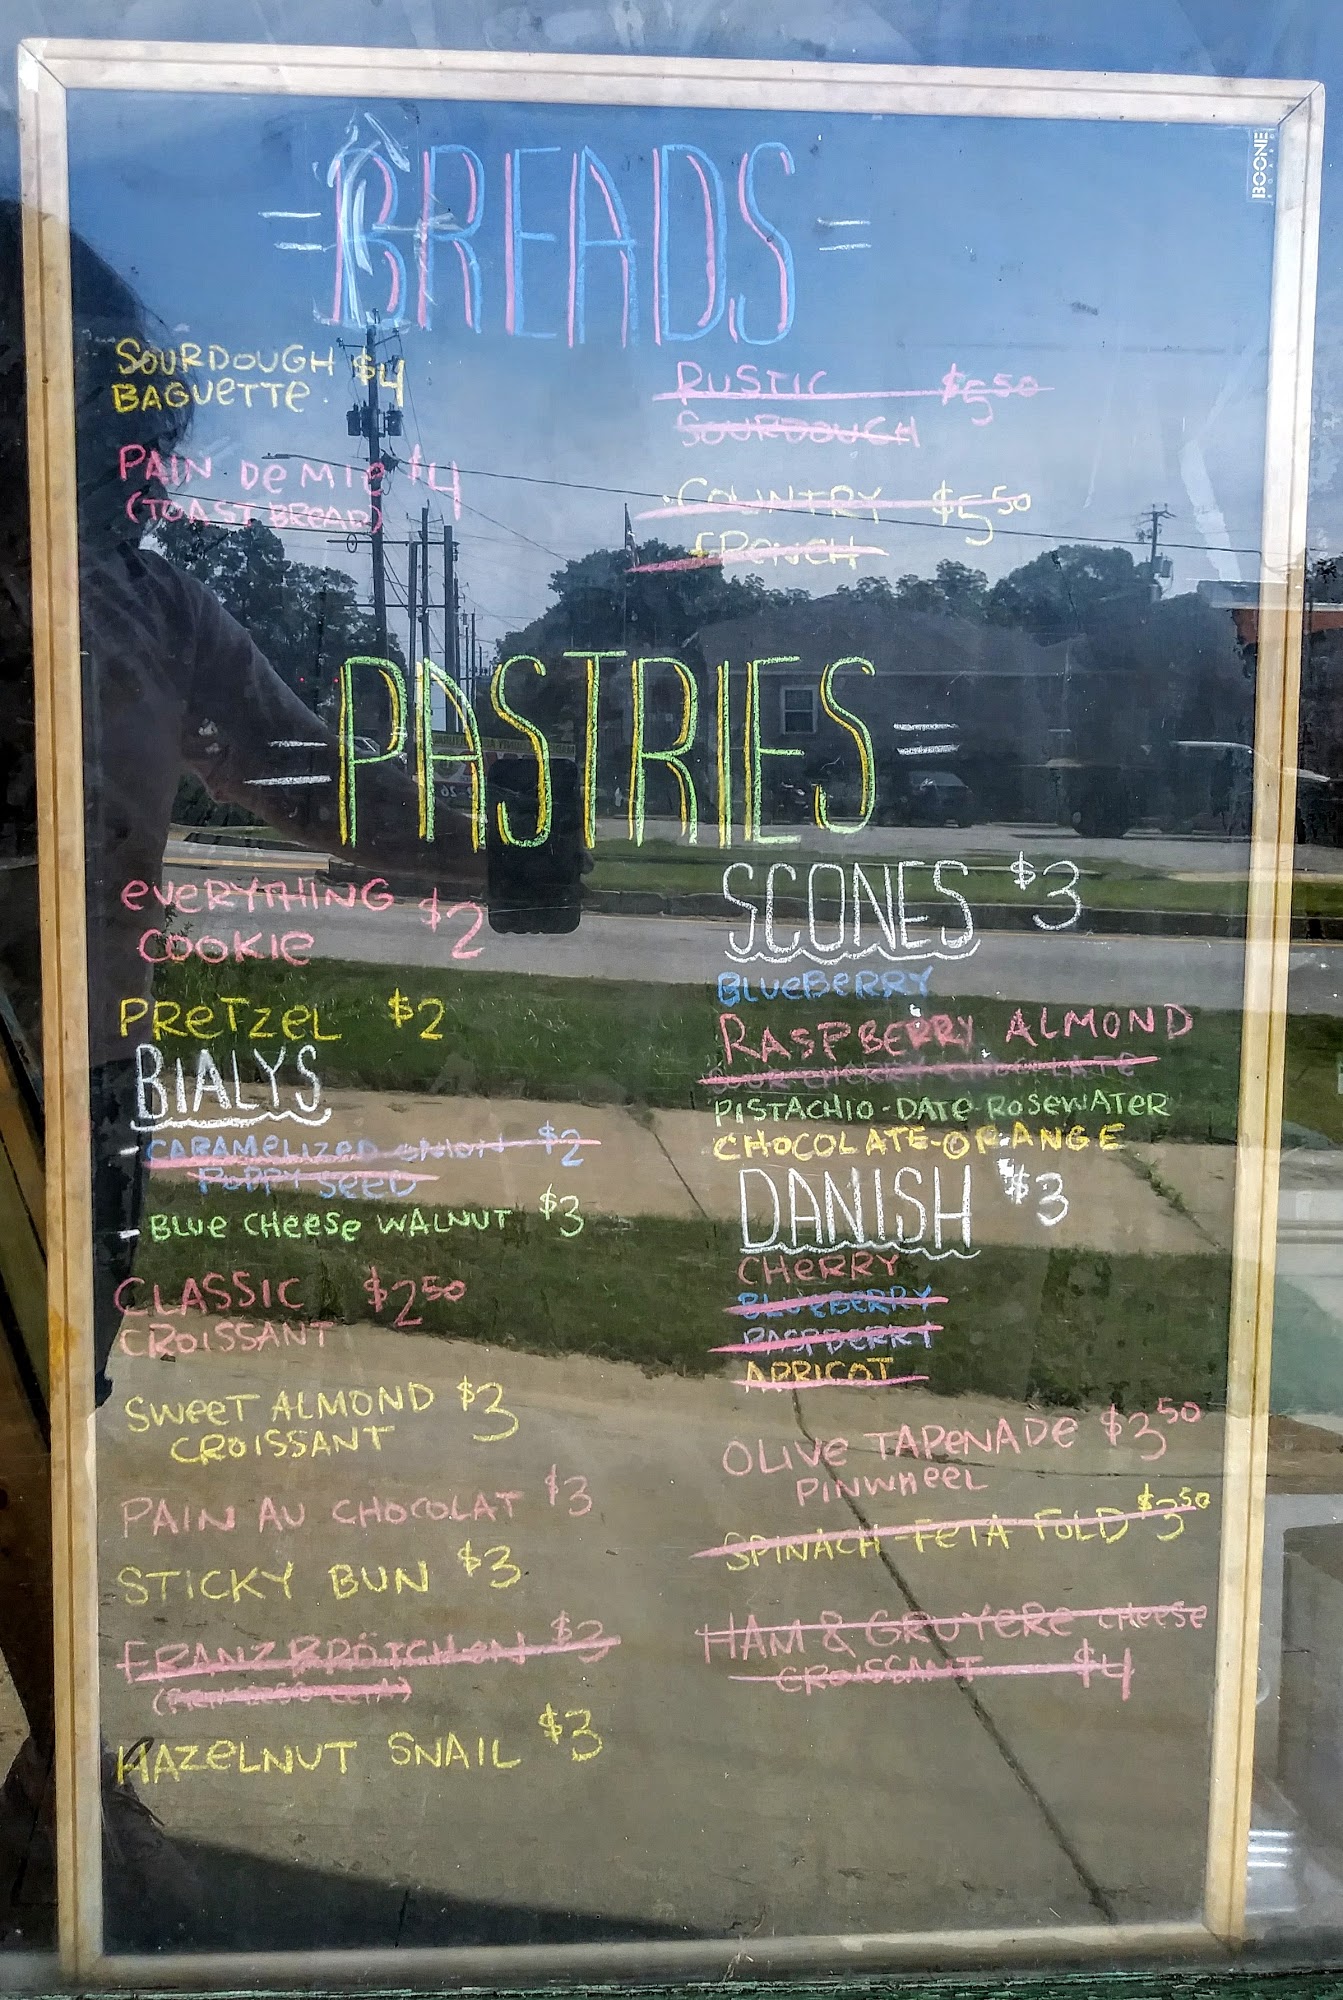 BOONE
= BREADS =
SOURDOUGH $4
BAGUETTE
PAIN De MIe $4
(TOAST BREAD)
RUSTIC $5.50
SOURDOUGH
COUNTRY $5.50
FRENCH
= PASTRIES =
eVERYTHING $2
COOKIE
PReTZEL $2
BIALYS
- CARAMeLIZED ONION $2
POPPY SeeD
- BLUe CHeeSe WALNUT $3
CLASSIC $2.50
CROISSANT
SWeeT ALMOND $3
CROISSANT
PAIN AU CHOCOLAT $3
STICKY BUN $3
FRANZBRÖTCHEN $3
HAZeLNUT SNAIL $3
SCONES $3
BLUeBeRRY
RASPBeRRY ALMOND
SOUR CHERRY CHOCOLATE
PISTACHIO-DATe-ROSeWATER
CHOCOLATE-ORANGE
DANISH $3
CHeRRY
BLUeBERRY
RASPBERRY
APRICOT
OLIVe TAPeNADe $3.50
PINWHeeL
SPINACH-FeTA FOLD $3.50
HAM & GRUYeRe CHeeSe
CROISSANT $4